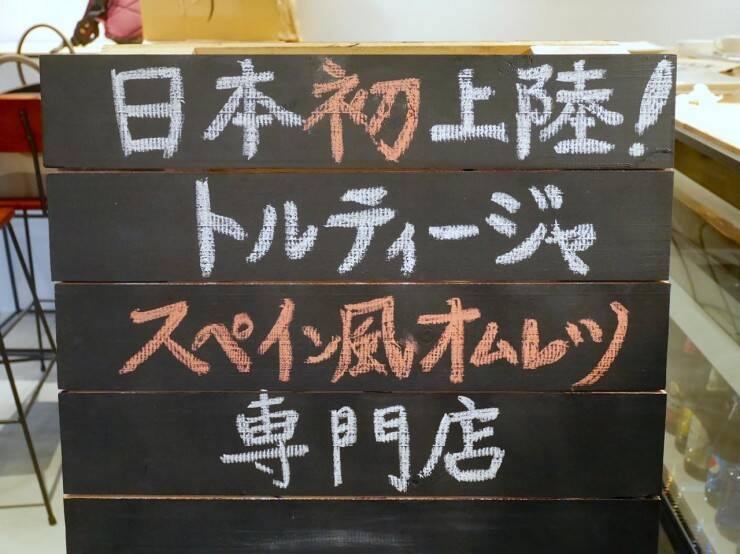 日本初上陸!
トルティージャ
スペイン風オムレツ
専門店